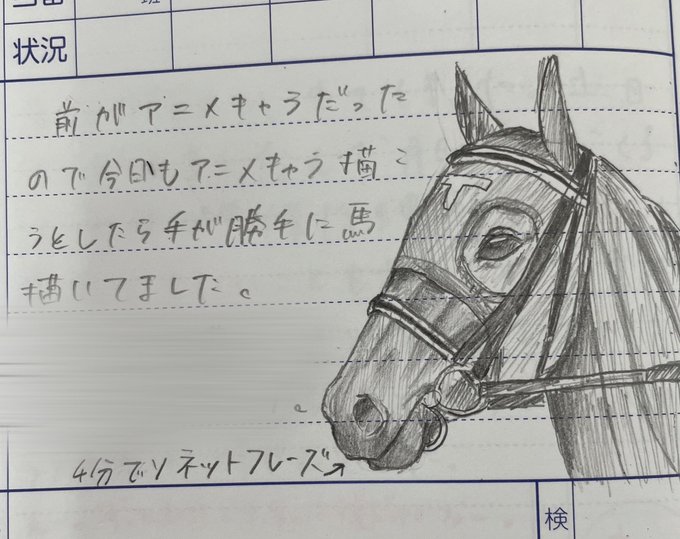 班
状況
前がアニメキャラだった
ので今日もアニメキャラ描こ
うとしたら手が勝手に馬
描いてました。
4分でソネットフレーズ↗
検